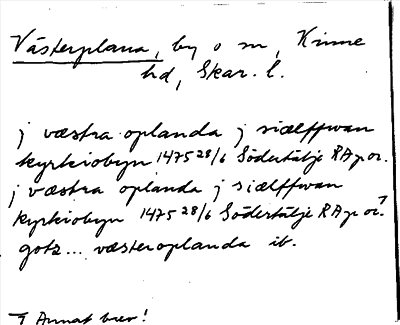 Västerplana, by o sn, Kinne
hd, Skar. l.
j væstra oplanda j siælffwan
kyrkiobyn 1475 28/6 Södertälje RAp or.
j væstra oplanda j siælffwan
kyrkiobyn 1475 28/6 Södertälje RAp or.⁊
gotz... væsteroplanda ib.
⁊ Annat brev!